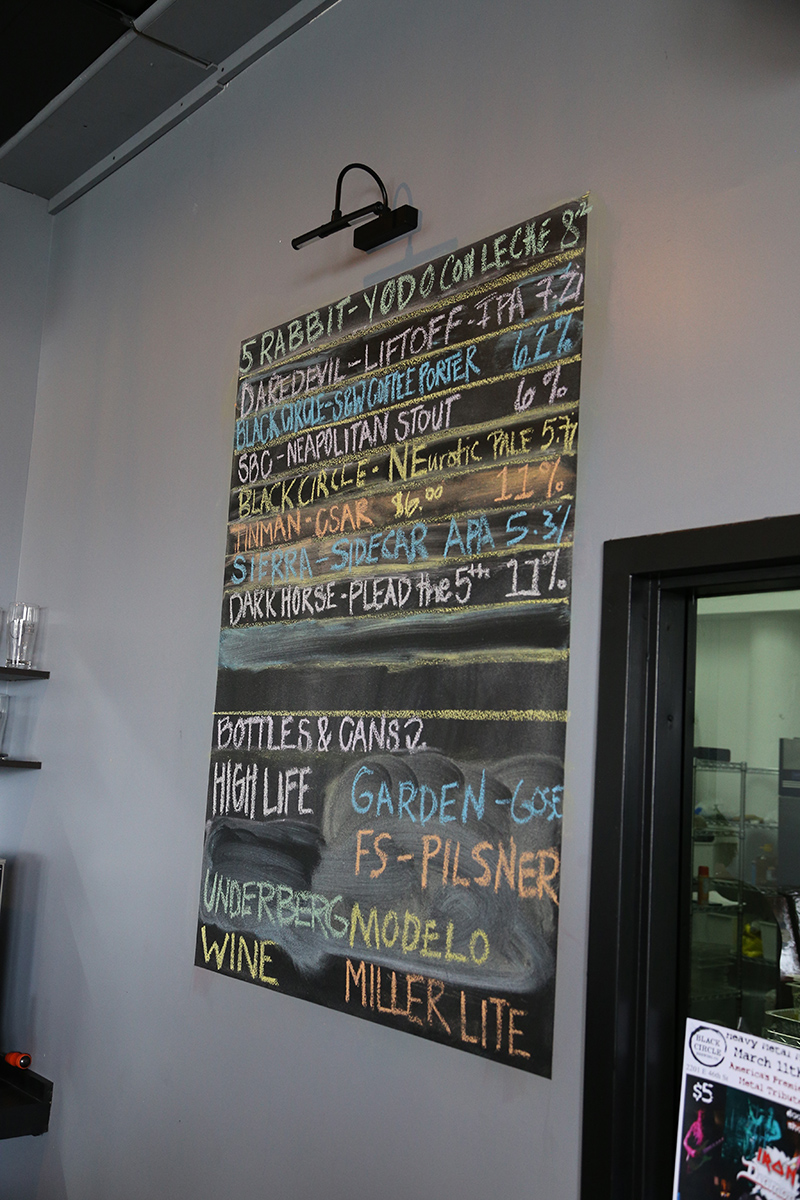 5 RABBIT - YODO CON LECHE 8.2
DAREDEVIL - LIFTOFF - IPA 7.2%
BLACK CIRCLE - SBW COFFEE PORTER 6.2%
SBC - NEAPOLITAN STOUT 6%
BLACK CIRCLE - NEurotic PALE 5.7%
TINMAN - CSAR $6.00 11%
SIERRA - SIDECAR APA 5.3%
DARK HORSE - PLEAD the 5th 11%
BOTTLES & CANS
HIGH LIFE GARDEN - GOSE
FS - PILSNER
UNDERBERG MODELO
WINE MILLER LITE
BLACK CIRCLE
Heavy Metal
March 11th
America's
Metal Tribute
$5
IRON